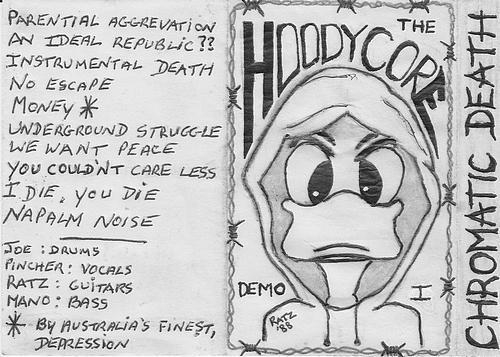 PARENTIAL AGGREVATION
AN IDEAL REPUBLIC??
INSTRUMENTAL DEATH
NO ESCAPE
MONEY *
UNDERGROUND STRUGGLE
WE WANT PEACE
YOU COULD'NT CARE LESS
I DIE, YOU DIE
NAPALM NOISE
JOE : DRUMS
PINCHER : VOCALS
RATZ : GUITARS
MANO : BASS
* BY AUSTRALIA'S FINEST,
DEPRESSION
THE
HOODYCORE
DEMO I
RATZ '88
CHROMATIC DEATH